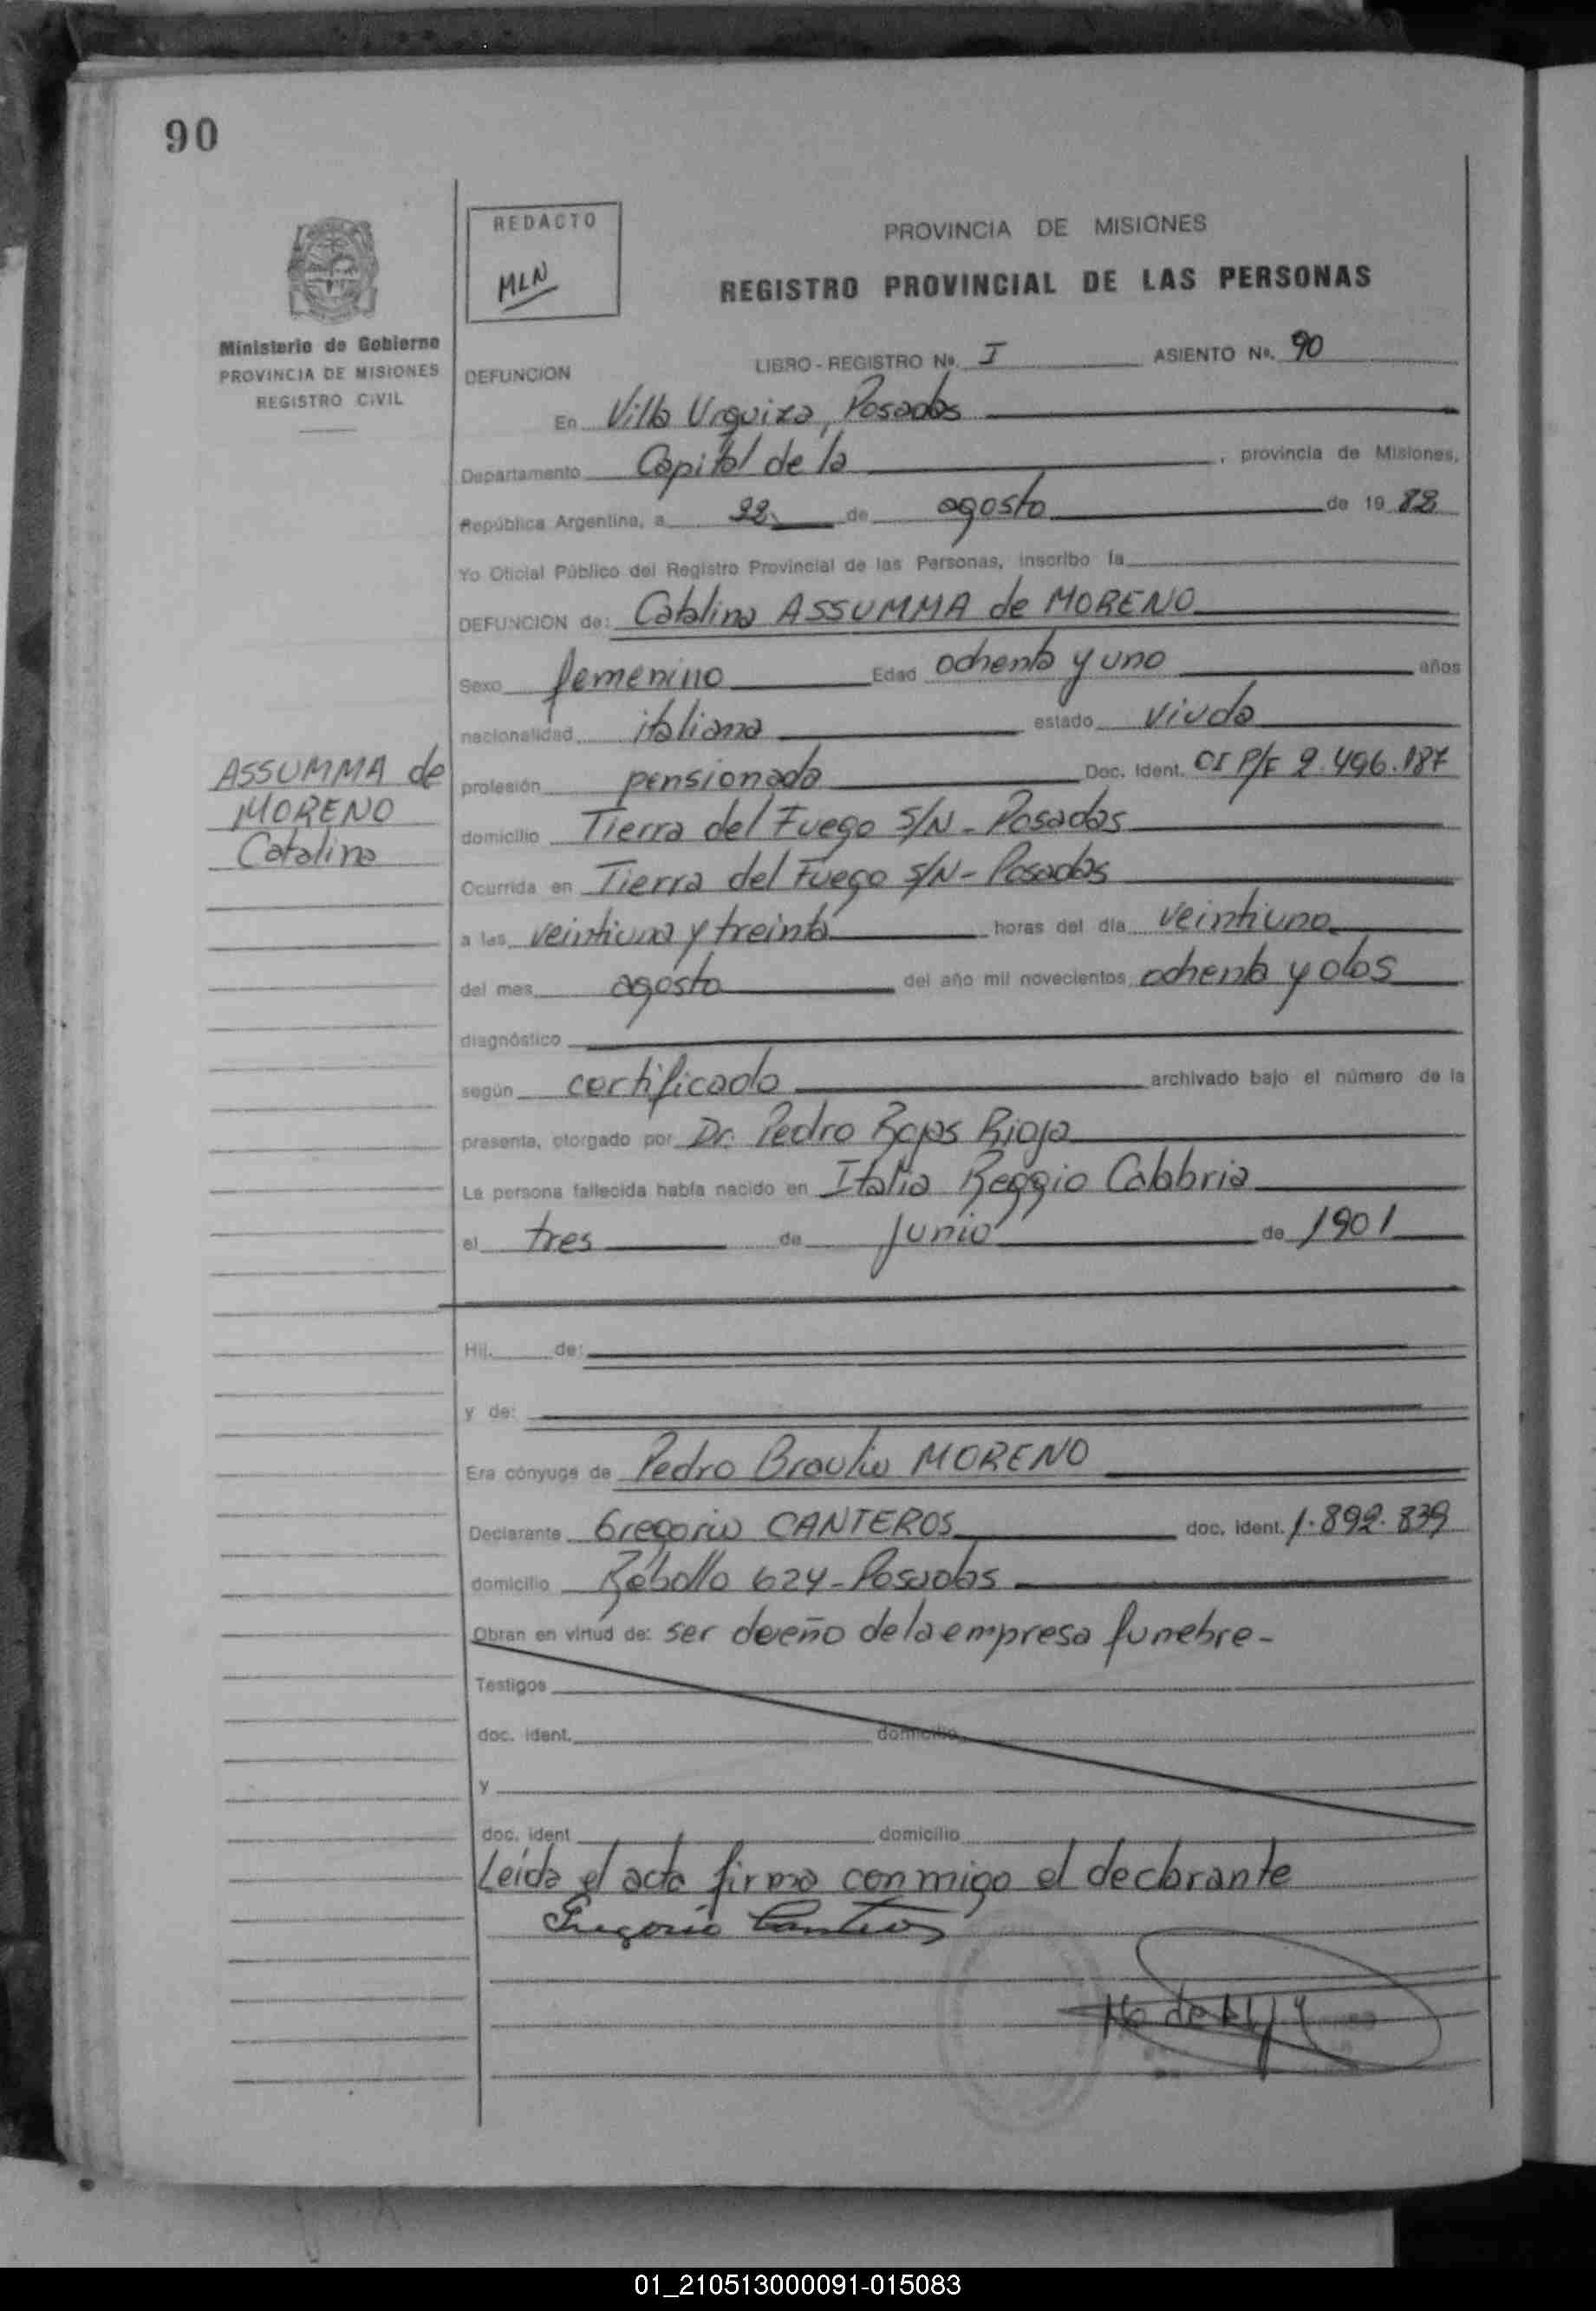 90
REDACTO
MLN
PROVINCIA DE MISIONES
REGISTRO PROVINCIAL DE LAS PERSONAS
Ministerio de Gobierno
PROVINCIA DE MISIONES
REGISTRO CIVIL
DEFUNCION LIBRO - REGISTRO Nº. I ASIENTO Nº. 90
En Villa Urquiza, Posadas
Departamento Capital de la , provincia de Misiones,
República Argentina, a 22 de agosto de 19 82
Yo Oficial Público del Registro Provincial de las Personas, inscribo la
DEFUNCION de: Catalina ASSUMMA de MORENO
Sexo femenino Edad ochenta y uno años
nacionalidad italiana estado viuda
ASSUMMA de
MORENO
Catalina
profesión pensionada Doc. Ident. CI P/F 2.496.187
domicilio Tierra del Fuego S/N - Posadas
Ocurrida en Tierra del Fuego S/N - Posadas
a las veintiuna y treinta horas del día veintiuno
del mes agosto del año mil novecientos ochenta y dos
diagnóstico
según certificado archivado bajo el número de la
presente, otorgado por Dr. Pedro Rojas Rioja
La persona fallecida había nacido en Italia Reggio Calabria
el tres de junio de 1901
Hij. de:
y de:
Era cónyuge de Pedro Braulio MORENO
Declarante Gregorio CANTEROS doc. ident. 1.892.839
domicilio Rebollo 624 - Posadas
Obran en virtud de: ser dueño de la empresa funebre -
Testigos
doc. ident. domicilio
y
doc. ident domicilio
Leída el acta firma conmigo el declarante
Gregorio Canteros
01_210513000091-015083